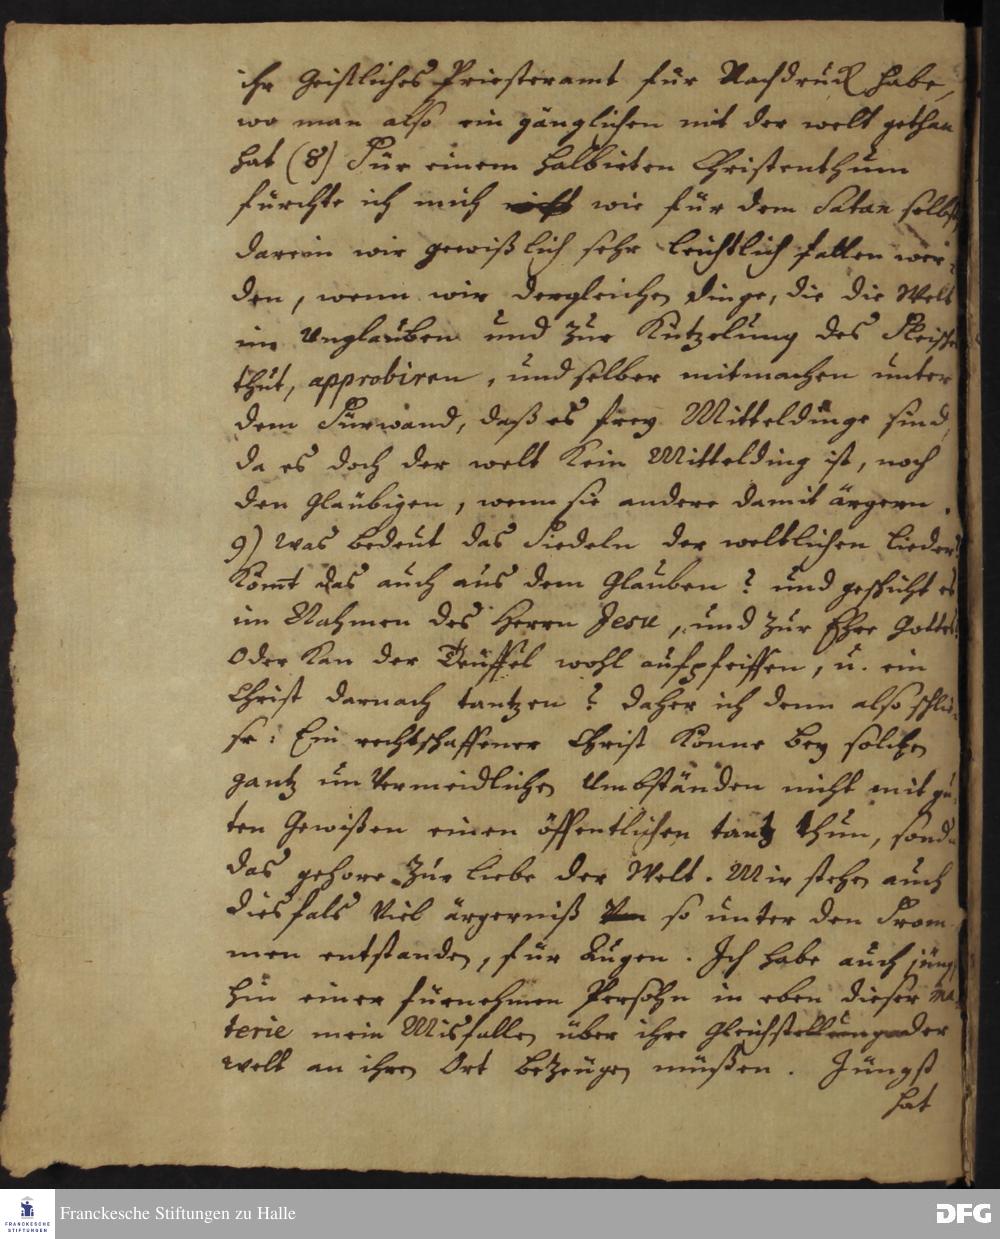 ihr Geistliches Priesteramt für Nachdruck habe,
wo man also ein gänglichen mit der welt gethan
hat (8) Für einem halbirten Christenthum
fürchte ich mich wie für dem Satan selbst
darein wir gewißlich sehr leichtlich fallen wer-
den, wenn wir dergleichen dinge, die die Welt
im Unglauben und zur Kützelung des Fleisches
thut, approbiren, und selber mitmachen unter
dem Fürwand, daß es frey Mitteldinge sind,
da es doch der welt kein Mittelding ist, noch
den Gläubigen, wenn sie andere damit ärgern.
9) Was bedeut das Fiedeln der weltlichen lieder?
Komt das auch aus dem Glauben? und geschicht es
im Nahmen des Herrn Jesu, und zur Ehre Gottes?
Oder kan der Teuffel wohl aufpfeiffen, u. ein
Christ darnach tantzen? daher ich denn also schlie-
ße: Ein rechtschaffener Christ könne bey solchen
gantz unvermeidlichen Umbständen nicht mit gu-
ten Gewißen einen öffentlichen tantz thun, sond.
das gehöre zur liebe der Welt. Mir stehen auch
diesfals viel ärgerniß so unter den From-
men entstanden, für Augen. Ich habe auch jüngst
hin einer fürnehmen Persohn in eben dieser Ma-
terie mein Misfallen über ihre Gleichstellung der
welt an ihren Ort bezeugen müßen. Jüngst
hat
Franckesche Stiftungen zu Halle
FRANCKESCHE
STIFTUNGEN
DFG